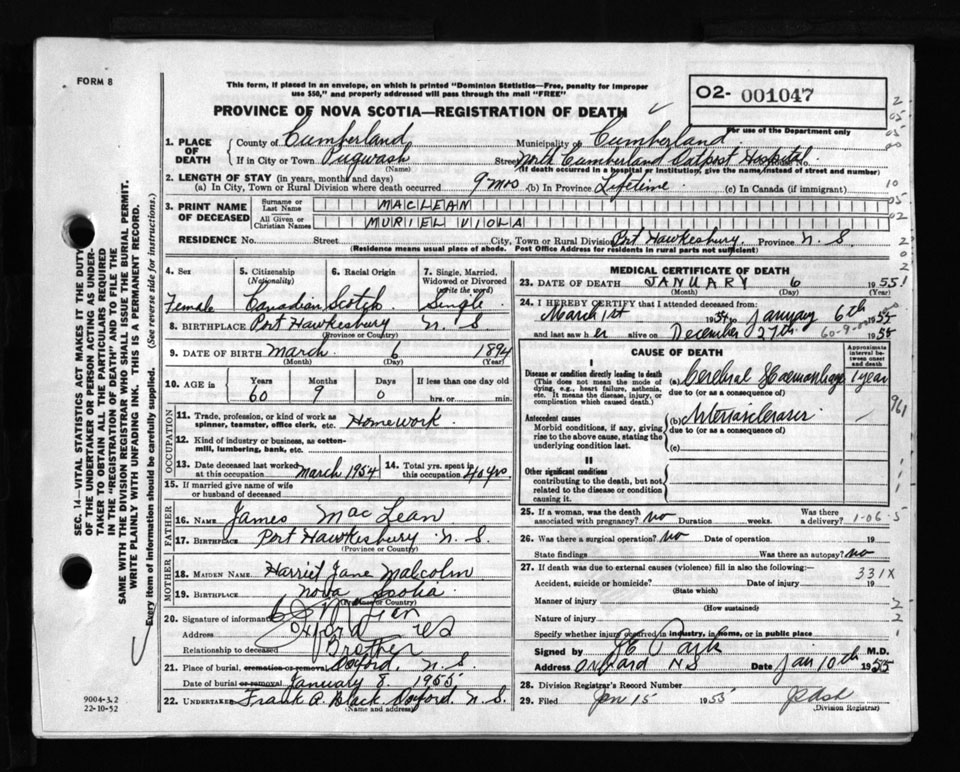 FORM 8
This form, if placed in an envelope, on which is printed "Dominion Statistics—Free, penalty for improper
use $50," and properly addressed will pass through the mail "FREE"
PROVINCE OF NOVA SCOTIA—REGISTRATION OF DEATH
O2- 001047
For use of the Department only
1. PLACE OF DEATH
County of Cumberland Municipality of Cumberland
If in City or Town Pugwash Street North Cumberland Outpost Hospital
(Name) (If death occurred in a hospital or institution, give the name instead of street and number)
2. LENGTH OF STAY (in years, months and days)
(a) In City, Town or Rural Division where death occurred 9 mos (b) In Province Lifetime (c) In Canada (if immigrant)
3. PRINT NAME OF DECEASED
Surname or Last Name MACLEAN
All Given or Christian Names MURIEL VIOLA
RESIDENCE No. Street City, Town or Rural Division Port Hawkesbury Province N.S.
(Residence means usual place of abode. Post Office Address for residents in rural parts not sufficient)
4. Sex Female
5. Citizenship (Nationality) Canadian
6. Racial Origin Scotch
7. Single, Married, Widowed or Divorced (Write the word) Single
8. BIRTHPLACE Port Hawkesbury N.S
(Province or Country)
9. DATE OF BIRTH March 6 1894
(Month) (Day) (Year)
10. AGE in Years 60 Months 9 Days 0 If less than one day old hrs. or min.
OCCUPATION
11. Trade, profession, or kind of work as spinner, teamster, office clerk, etc. Homework
12. Kind of industry or business, as cotton-mill, lumbering, bank, etc.
13. Date deceased last worked at this occupation March 1954
14. Total yrs. spent in this occupation 40 yrs
15. If married give name of wife or husband of deceased
FATHER
16. NAME James MacLean
17. BIRTHPLACE Port Hawkesbury N.S.
(Province or Country)
MOTHER
18. MAIDEN NAME Harriet Jane Malcolm
19. BIRTHPLACE Nova Scotia
(Province or Country)
20. Signature of informant
Address Oxford
Relationship to deceased Brother
21. Place of burial, cremation or removal Oxford, N.S.
Date of burial or removal January 8. 1955
22. UNDERTAKER Frank A. Black Oxford N.S.
(Name and address)
MEDICAL CERTIFICATE OF DEATH
23. DATE OF DEATH JANUARY 6 1955
(Month) (Day) (Year)
24. I HEREBY CERTIFY that I attended deceased from:
March 1st 1954 to January 6th 1955
and last saw her alive on December 27th 1955
60-9-00
CAUSE OF DEATH
Approximate interval between onset and death
I
Disease or condition directly leading to death (a) Cerebral Haemorrhage 1 year
(This does not mean the mode of dying, e.g., heart failure, asthenia, etc. It means the disease, injury, or complication which caused death.)
due to (or as a consequence of)
Antecedent causes (b)
Morbid conditions, if any, giving rise to the above cause, stating the underlying condition last.
due to (or as a consequence of)
(c)
II
Other significant conditions
contributing to the death, but not related to the disease or condition causing it.
25. If a woman, was the death associated with pregnancy? no Duration weeks. Was there a delivery?
1-06-5
26. Was there a surgical operation? No Date of operation 19
State findings Was there an autopsy? no
27. If death was due to external causes (violence) fill in also the following:—
331X
Accident, suicide or homicide? Date of injury 19
(State which)
Manner of injury
(How sustained)
Nature of injury
Specify whether injury occurred in industry, in home, or in public place
Signed by M.D.
Address Oxford N.S Date Jan 10th 1955
28. Division Registrar's Record Number
29. Filed Jan 15 1955
(Division Registrar)
SEC. 14—VITAL STATISTICS ACT MAKES IT THE DUTY
OF THE UNDERTAKER OR PERSON ACTING AS UNDER-
TAKER TO OBTAIN ALL THE PARTICULARS REQUIRED
IN THE "REGISTRATION OF DEATH" AND TO FILE THE
SAME WITH THE DIVISION REGISTRAR WHO SHALL ISSUE THE BURIAL PERMIT.
WRITE PLAINLY WITH UNFADING INK. THIS IS A PERMANENT RECORD.
Every item of information should be carefully supplied. (See reverse side for instructions.)
9004-3.2
22-10-52